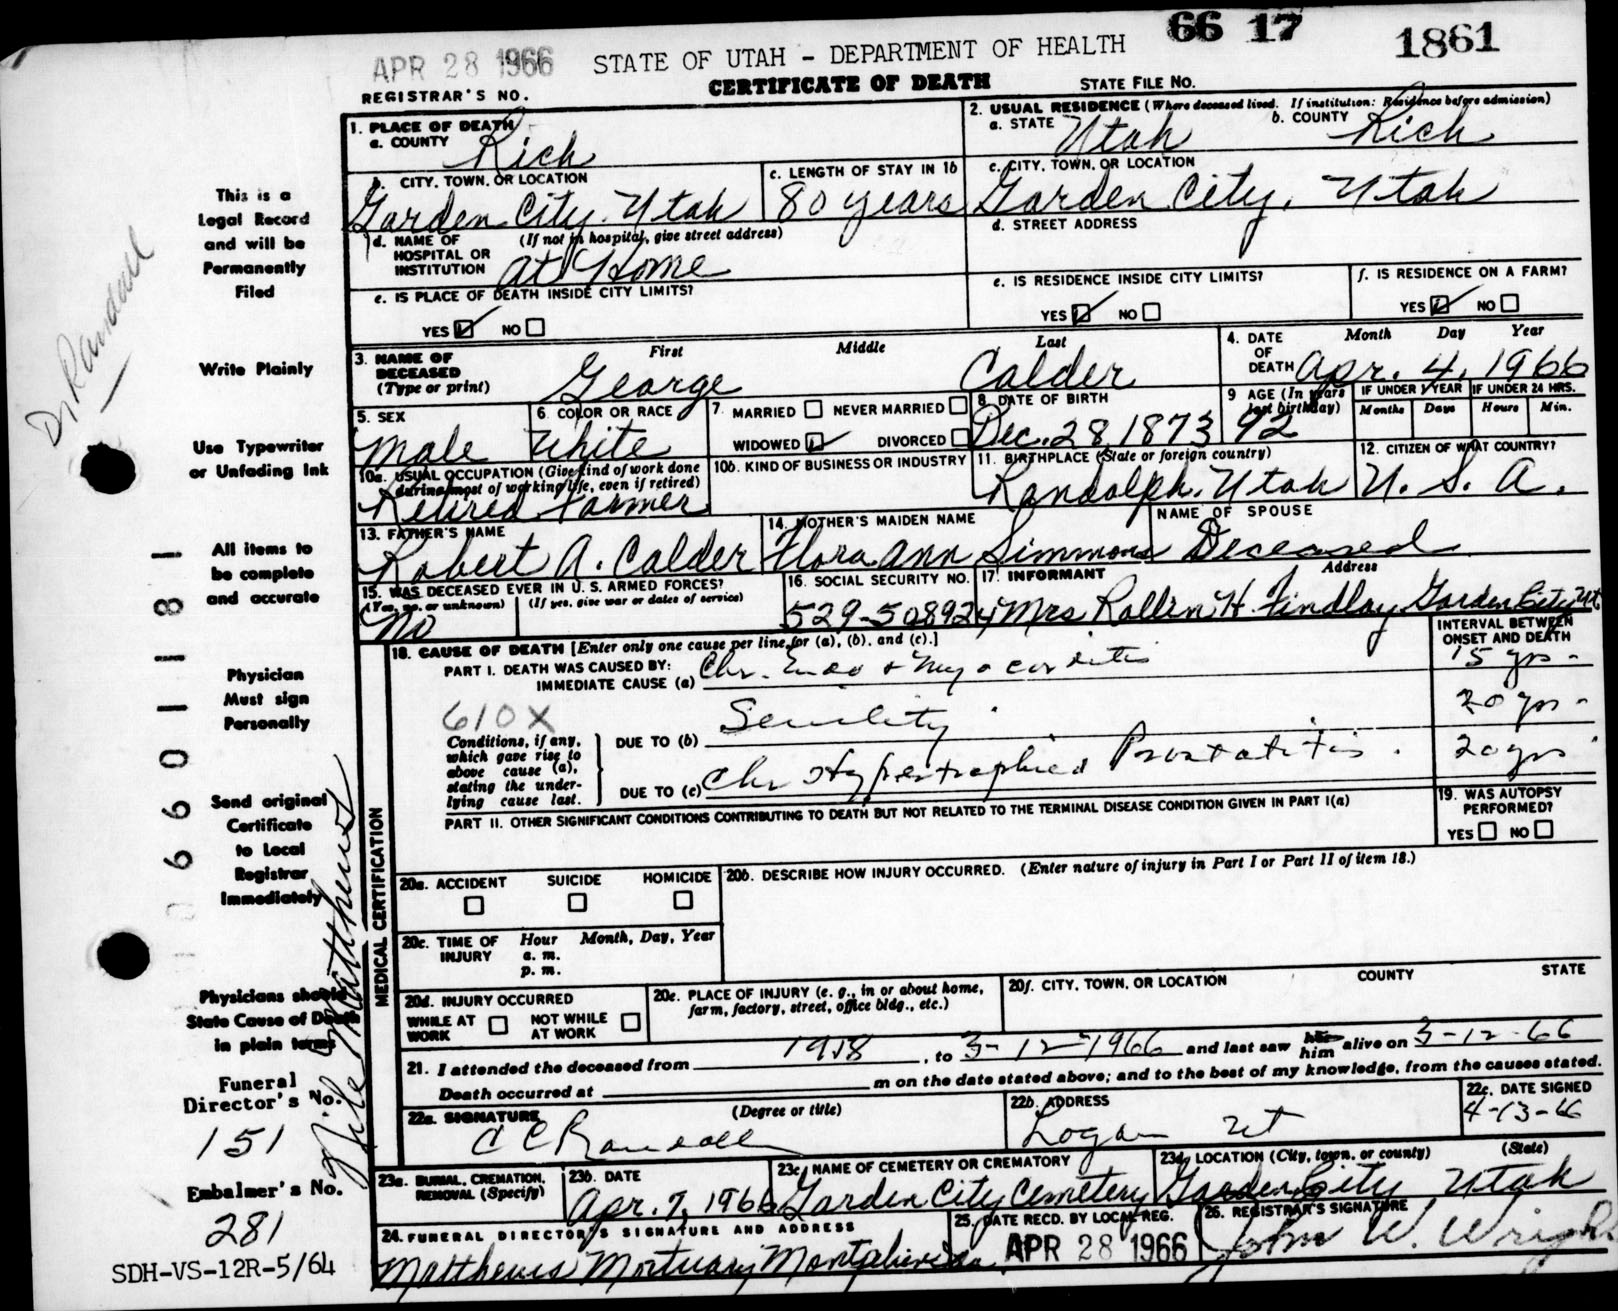 APR 28 1966 STATE OF UTAH - DEPARTMENT OF HEALTH 66 17 1861
REGISTRAR'S NO. CERTIFICATE OF DEATH STATE FILE NO.
1. PLACE OF DEATH
a. COUNTY Rich
2. USUAL RESIDENCE (Where deceased lived. If institution: Residence before admission)
a. STATE Utah b. COUNTY Rich
CITY, TOWN, OR LOCATION Garden City, Utah
c. LENGTH OF STAY IN 1b 80 years
c. CITY, TOWN, OR LOCATION Garden City, Utah
d. NAME OF HOSPITAL OR INSTITUTION (If not in hospital, give street address) at Home
d. STREET ADDRESS
e. IS PLACE OF DEATH INSIDE CITY LIMITS?
YES ☑ NO ☐
e. IS RESIDENCE INSIDE CITY LIMITS?
YES ☑ NO ☐
f. IS RESIDENCE ON A FARM?
YES ☑ NO ☐
3. NAME OF DECEASED (Type or print)
First Middle Last
George Calder
4. DATE OF DEATH Month Day Year
Apr. 4, 1966
5. SEX Male
6. COLOR OR RACE White
7. MARRIED ☐ NEVER MARRIED ☐
WIDOWED ☑ DIVORCED ☐
8. DATE OF BIRTH Dec. 28, 1873
9 AGE (In years last birthday) 92
IF UNDER 1 YEAR Months Days
IF UNDER 24 HRS. Hours Min.
10a. USUAL OCCUPATION (Give kind of work done during most of working life, even if retired)
Retired Farmer
10b. KIND OF BUSINESS OR INDUSTRY
11. BIRTHPLACE (State or foreign country) Randolph, Utah
12. CITIZEN OF WHAT COUNTRY? U. S. A.
13. FATHER'S NAME Robert A. Calder
14. MOTHER'S MAIDEN NAME Flora Ann Simmons
NAME OF SPOUSE Deceased
15. WAS DECEASED EVER IN U. S. ARMED FORCES?
(Yes, no, or unknown) (If yes, give war or dates of service)
No
16. SOCIAL SECURITY NO. 529-508924
17. INFORMANT Address
Mrs Rollin H. Findlay Garden City Ut
18. CAUSE OF DEATH [Enter only one cause per line for (a), (b), and (c).]
INTERVAL BETWEEN ONSET AND DEATH
PART I. DEATH WAS CAUSED BY:
IMMEDIATE CAUSE (a) Chr. Endo & Myocarditis 15 yrs-
610X
Conditions, if any, which gave rise to above cause (a), stating the underlying cause last.
DUE TO (b) Senility 20 yrs-
DUE TO (c) Chr Hypertrophied Prostatitis. 20 yrs
PART II. OTHER SIGNIFICANT CONDITIONS CONTRIBUTING TO DEATH BUT NOT RELATED TO THE TERMINAL DISEASE CONDITION GIVEN IN PART I(a)
19. WAS AUTOPSY PERFORMED?
YES ☐ NO ☐
20a. ACCIDENT SUICIDE HOMICIDE
☐ ☐ ☐
20b. DESCRIBE HOW INJURY OCCURRED. (Enter nature of injury in Part I or Part II of item 18.)
20c. TIME OF INJURY Hour Month, Day, Year
a. m.
p. m.
20d. INJURY OCCURRED
WHILE AT WORK ☐ NOT WHILE AT WORK ☐
20e. PLACE OF INJURY (e. g., in or about home, farm, factory, street, office bldg., etc.)
20f. CITY, TOWN, OR LOCATION COUNTY STATE
21. I attended the deceased from 1918, to 3-12-1966 and last saw her him alive on 3-12-66
Death occurred at m on the date stated above; and to the best of my knowledge, from the causes stated.
22a. SIGNATURE (Degree or title)
C C Randall
22b. ADDRESS
Logan Ut
22c. DATE SIGNED
4-13-66
23a. BURIAL, CREMATION, REMOVAL (Specify)
23b. DATE Apr. 7, 1966
23c. NAME OF CEMETERY OR CREMATORY Garden City Cemetery
23d. LOCATION (City, town, or county) (State)
Garden City Utah
24. FUNERAL DIRECTOR'S SIGNATURE AND ADDRESS
Matthews Mortuary Montpelier Ida.
25. DATE RECD. BY LOCAL REG.
APR 28 1966
26. REGISTRAR'S SIGNATURE
John W. Wright
MEDICAL CERTIFICATION
This is a
Legal Record
and will be
Permanently
Filed
Write Plainly
Use Typewriter
or Unfading Ink
All items to
be complete
and accurate
Physician
Must sign
Personally
Send original
Certificate
to Local
Registrar
immediately
Physicians should
State Cause of Death
in plain terms
Funeral
Director's No.
151
Embalmer's No.
281
SDH-VS-12R-5/64
Dr Randall
Matthews